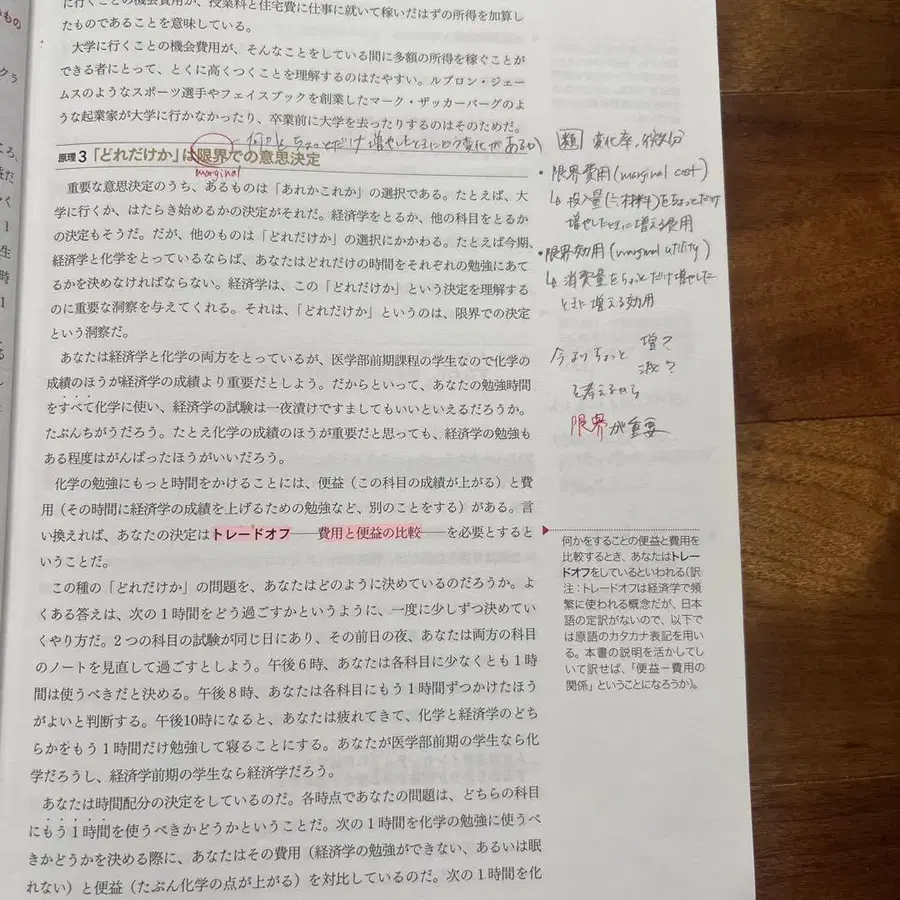 に行くことの機会費用が、授業料と住宅費に仕事に就いて稼いだはずの所得を加算し
たものであることを意味している。
大学に行くことの機会費用が、そんなことをしている間に多額の所得を稼ぐことが
できる者にとって、とくに高くつくことを理解するのはたやすい。ルブロン・ジェー
ムスのようなスポーツ選手やフェイスブックを創業したマーク・ザッカーバーグのよ
うな起業家が大学に行かなかったり、卒業前に大学を去ったりするのはそのためだ。
何かをちょっとだけ増やしたときにどう変化があるか
原理3 「どれだけか」は限界での意思決定
marginal
重要な意思決定のうち、あるものは「あれかこれか」の選択である。たとえば、大
学に行くか、はたらき始めるかの決定がそれだ。経済学をとるか、他の科目をとるか
の決定もそうだ。だが、他のものは「どれだけか」の選択にかかわる。たとえば今期、
経済学と化学をとっているならば、あなたはどれだけの時間をそれぞれの勉強にあて
るかを決めなければならない。経済学は、この「どれだけか」という決定を理解する
のに重要な洞察を与えてくれる。それは、「どれだけか」というのは、限界での決定
という洞察だ。
あなたは経済学と化学の両方をとっているが、医学部前期課程の学生なので化学の
成績のほうが経済学の成績より重要だとしよう。だからといって、あなたの勉強時間
をすべて化学に使い、経済学の試験は一夜漬けですましてもいいといえるだろうか。
たぶんちがうだろう。たとえ化学の成績のほうが重要だと思っても、経済学の勉強も
ある程度はがんばったほうがいいだろう。
化学の勉強にもっと時間をかけることには、便益（この科目の成績が上がる）と費
用（その時間に経済学の成績を上げるための勉強など、別のことをする）がある。言
い換えれば、あなたの決定はトレードオフ——費用と便益の比較——を必要とすると
いうことだ。
この種の「どれだけか」の問題を、あなたはどのように決めているのだろうか。よ
くある答えは、次の1時間をどう過ごすかというように、一度に少しずつ決めてい
くやり方だ。2つの科目の試験が同じ日にあり、その前日の夜、あなたは両方の科目
のノートを見直して過ごすとしよう。午後6時、あなたは各科目に少なくとも1時
間は使うべきだと決める。午後8時、あなたは各科目にもう1時間ずつかけたほう
がよいと判断する。午後10時になると、あなたは疲れてきて、化学と経済学のどち
らかをもう1時間だけ勉強して寝ることにする。あなたが医学部前期の学生なら化
学だろうし、経済学前期の学生なら経済学だろう。
あなたは時間配分の決定をしているのだ。各時点であなたの問題は、どちらの科目
にもう1時間を使うべきかどうかということだ。次の1時間を化学の勉強に使うべ
きかどうかを決める際に、あなたはその費用（経済学の勉強ができない、あるいは眠
れない）と便益（たぶん化学の点が上がる）を対比しているのだ。次の1時間を化
類 変化率、微分
・限界費用(marginal cost)
↳ 投入量(≒材料)をちょっとだけ
増やしたときに増える費用
・限界効用(marginal utility)
↳ 消費量をちょっとだけ増やした
ときに増える効用
今よりちょっと 増?
減?
を考えるから
限界が重要
何かをすることの便益と費用を
比較するとき、あなたはトレー
ドオフをしているといわれる(訳
注：トレードオフは経済学で頻
繁に使われる概念だが、日本
語の定訳がないので、以下で
は原語のカタカナ表記を用い
る。本書の説明を活かしてし
いて訳せば、「便益－費用の
関係」ということになろうか)。